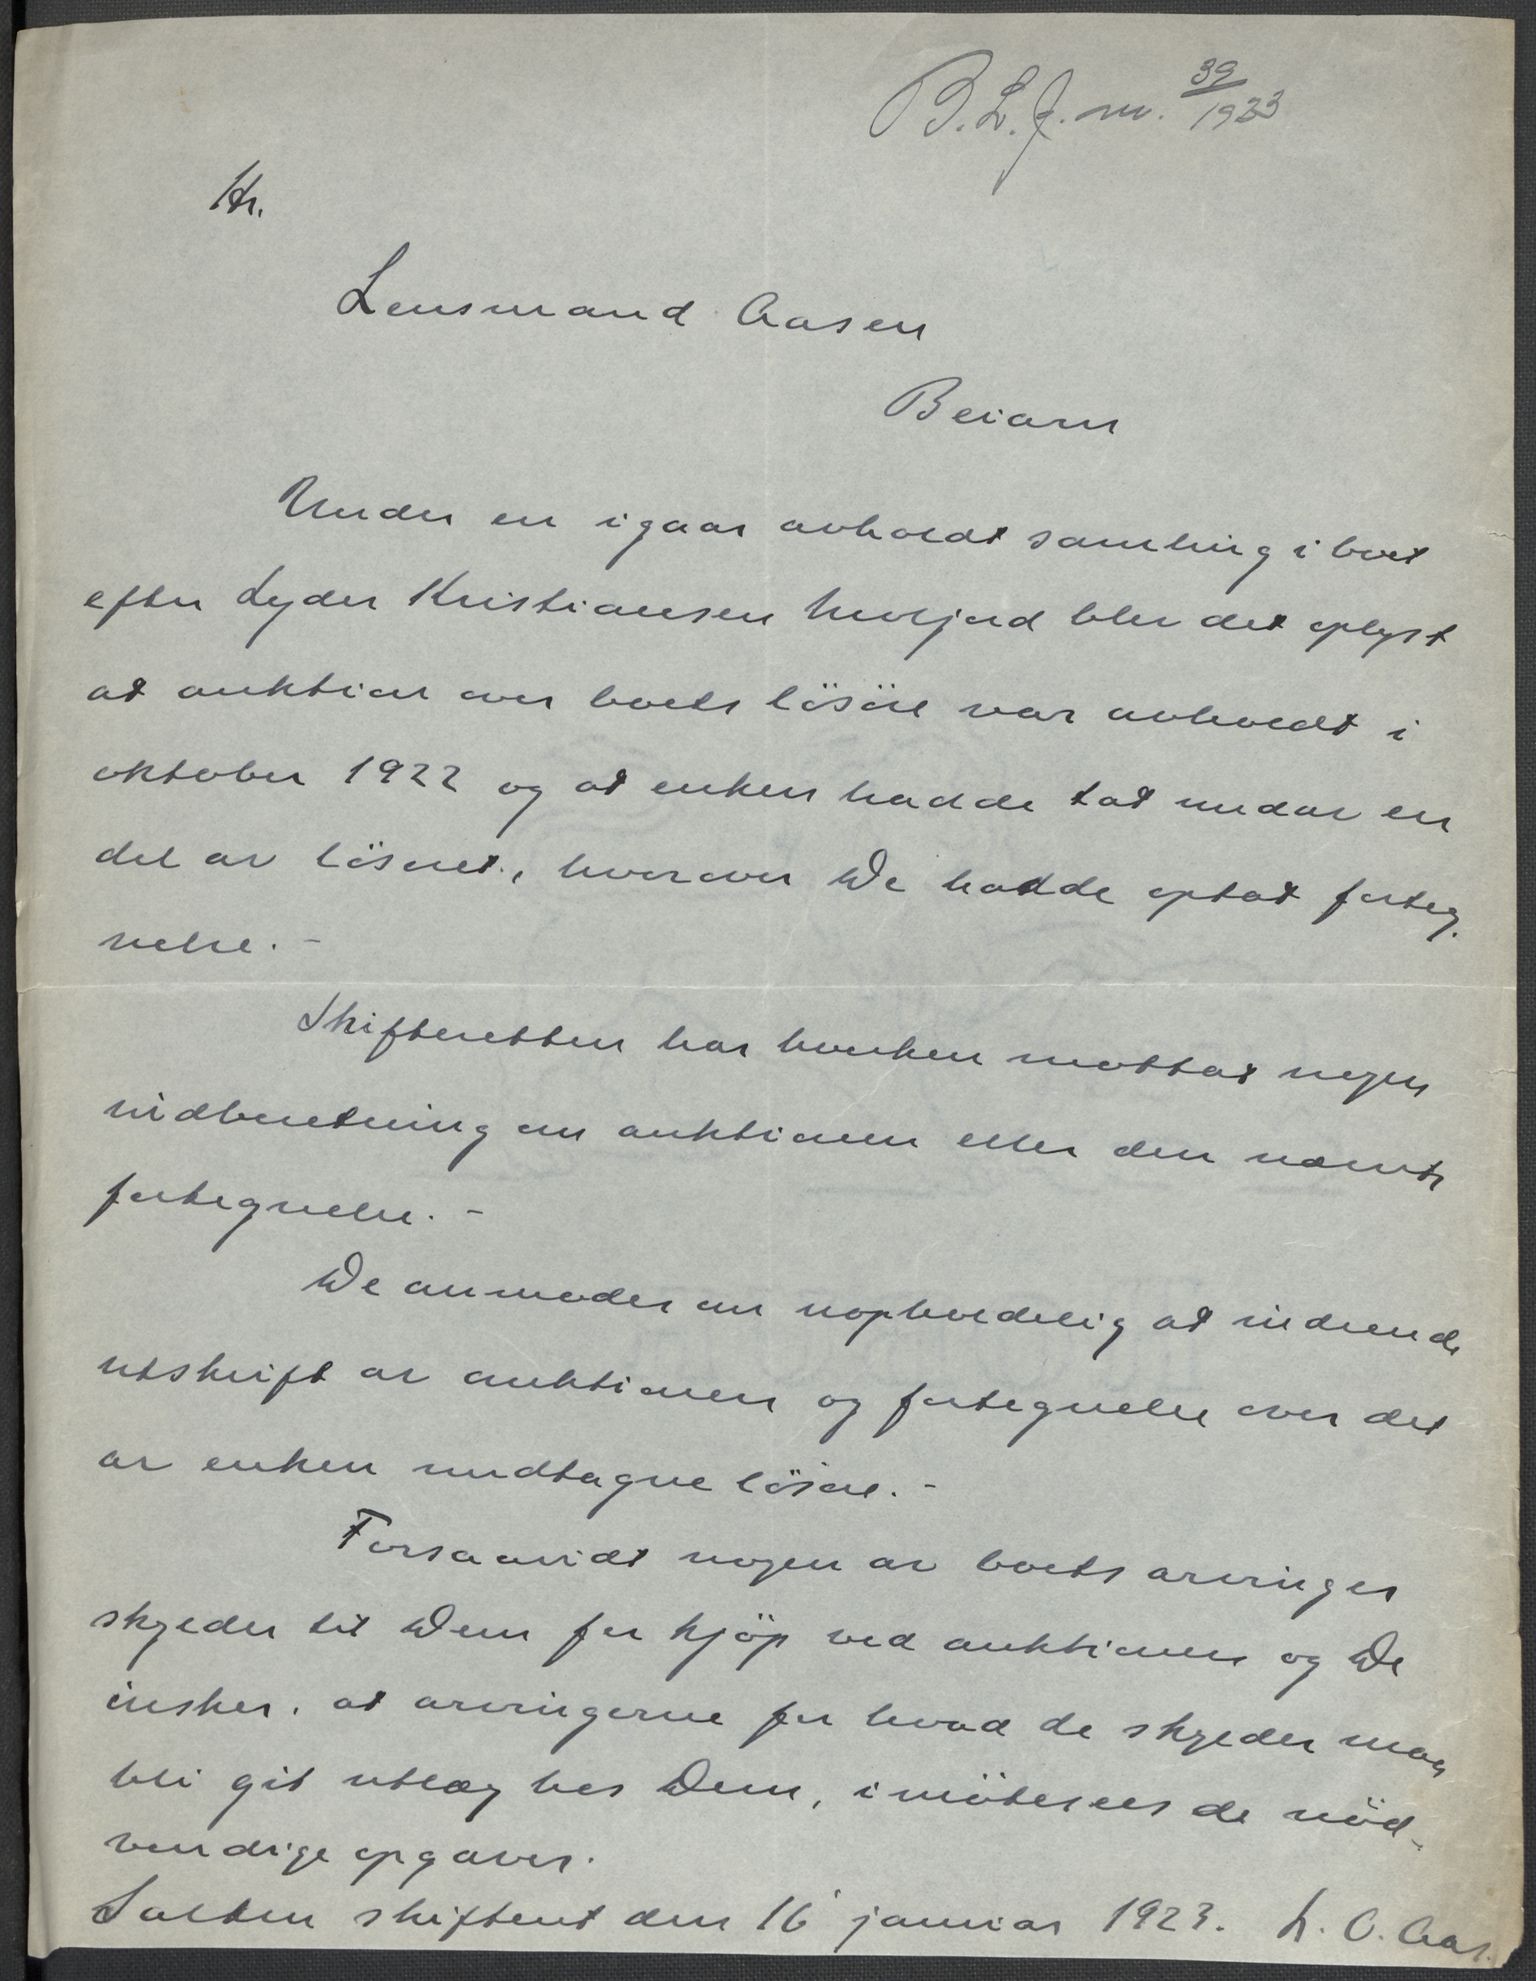 B. L. J. nr. 39/1923
Hr.
Lensmand Aasen
Beiarn
Under en igaar avholdt samling i boet
efter Lyder Kristiansen Molfjord blev det oplyst
at auktion over boets løsöre var avholdt i
oktober 1922 og at enken hadde tat undav en
del av lösöret, hvorover De hadde optat forteg-
nelse. -
Skifteretten har hverken mottat nogen
indberetning om auktionen eller den nævnte
fortegnelse. -
De anmodes om uopholdelig at indsende
utskrift av auktionen og fortegnelse over det
av enken undtagne lösöre. -
Forsaavidt nogen av boets arvinger
skylder til Dem for kjöp ved auktionen og De
önsker, at arvingerne for hvad de skylder maa
bli git utlæg hos Dem, imötesees de nöd-
vendige opgaver.
Salten skifteret den 16 januar 1923. L. O. Aas.